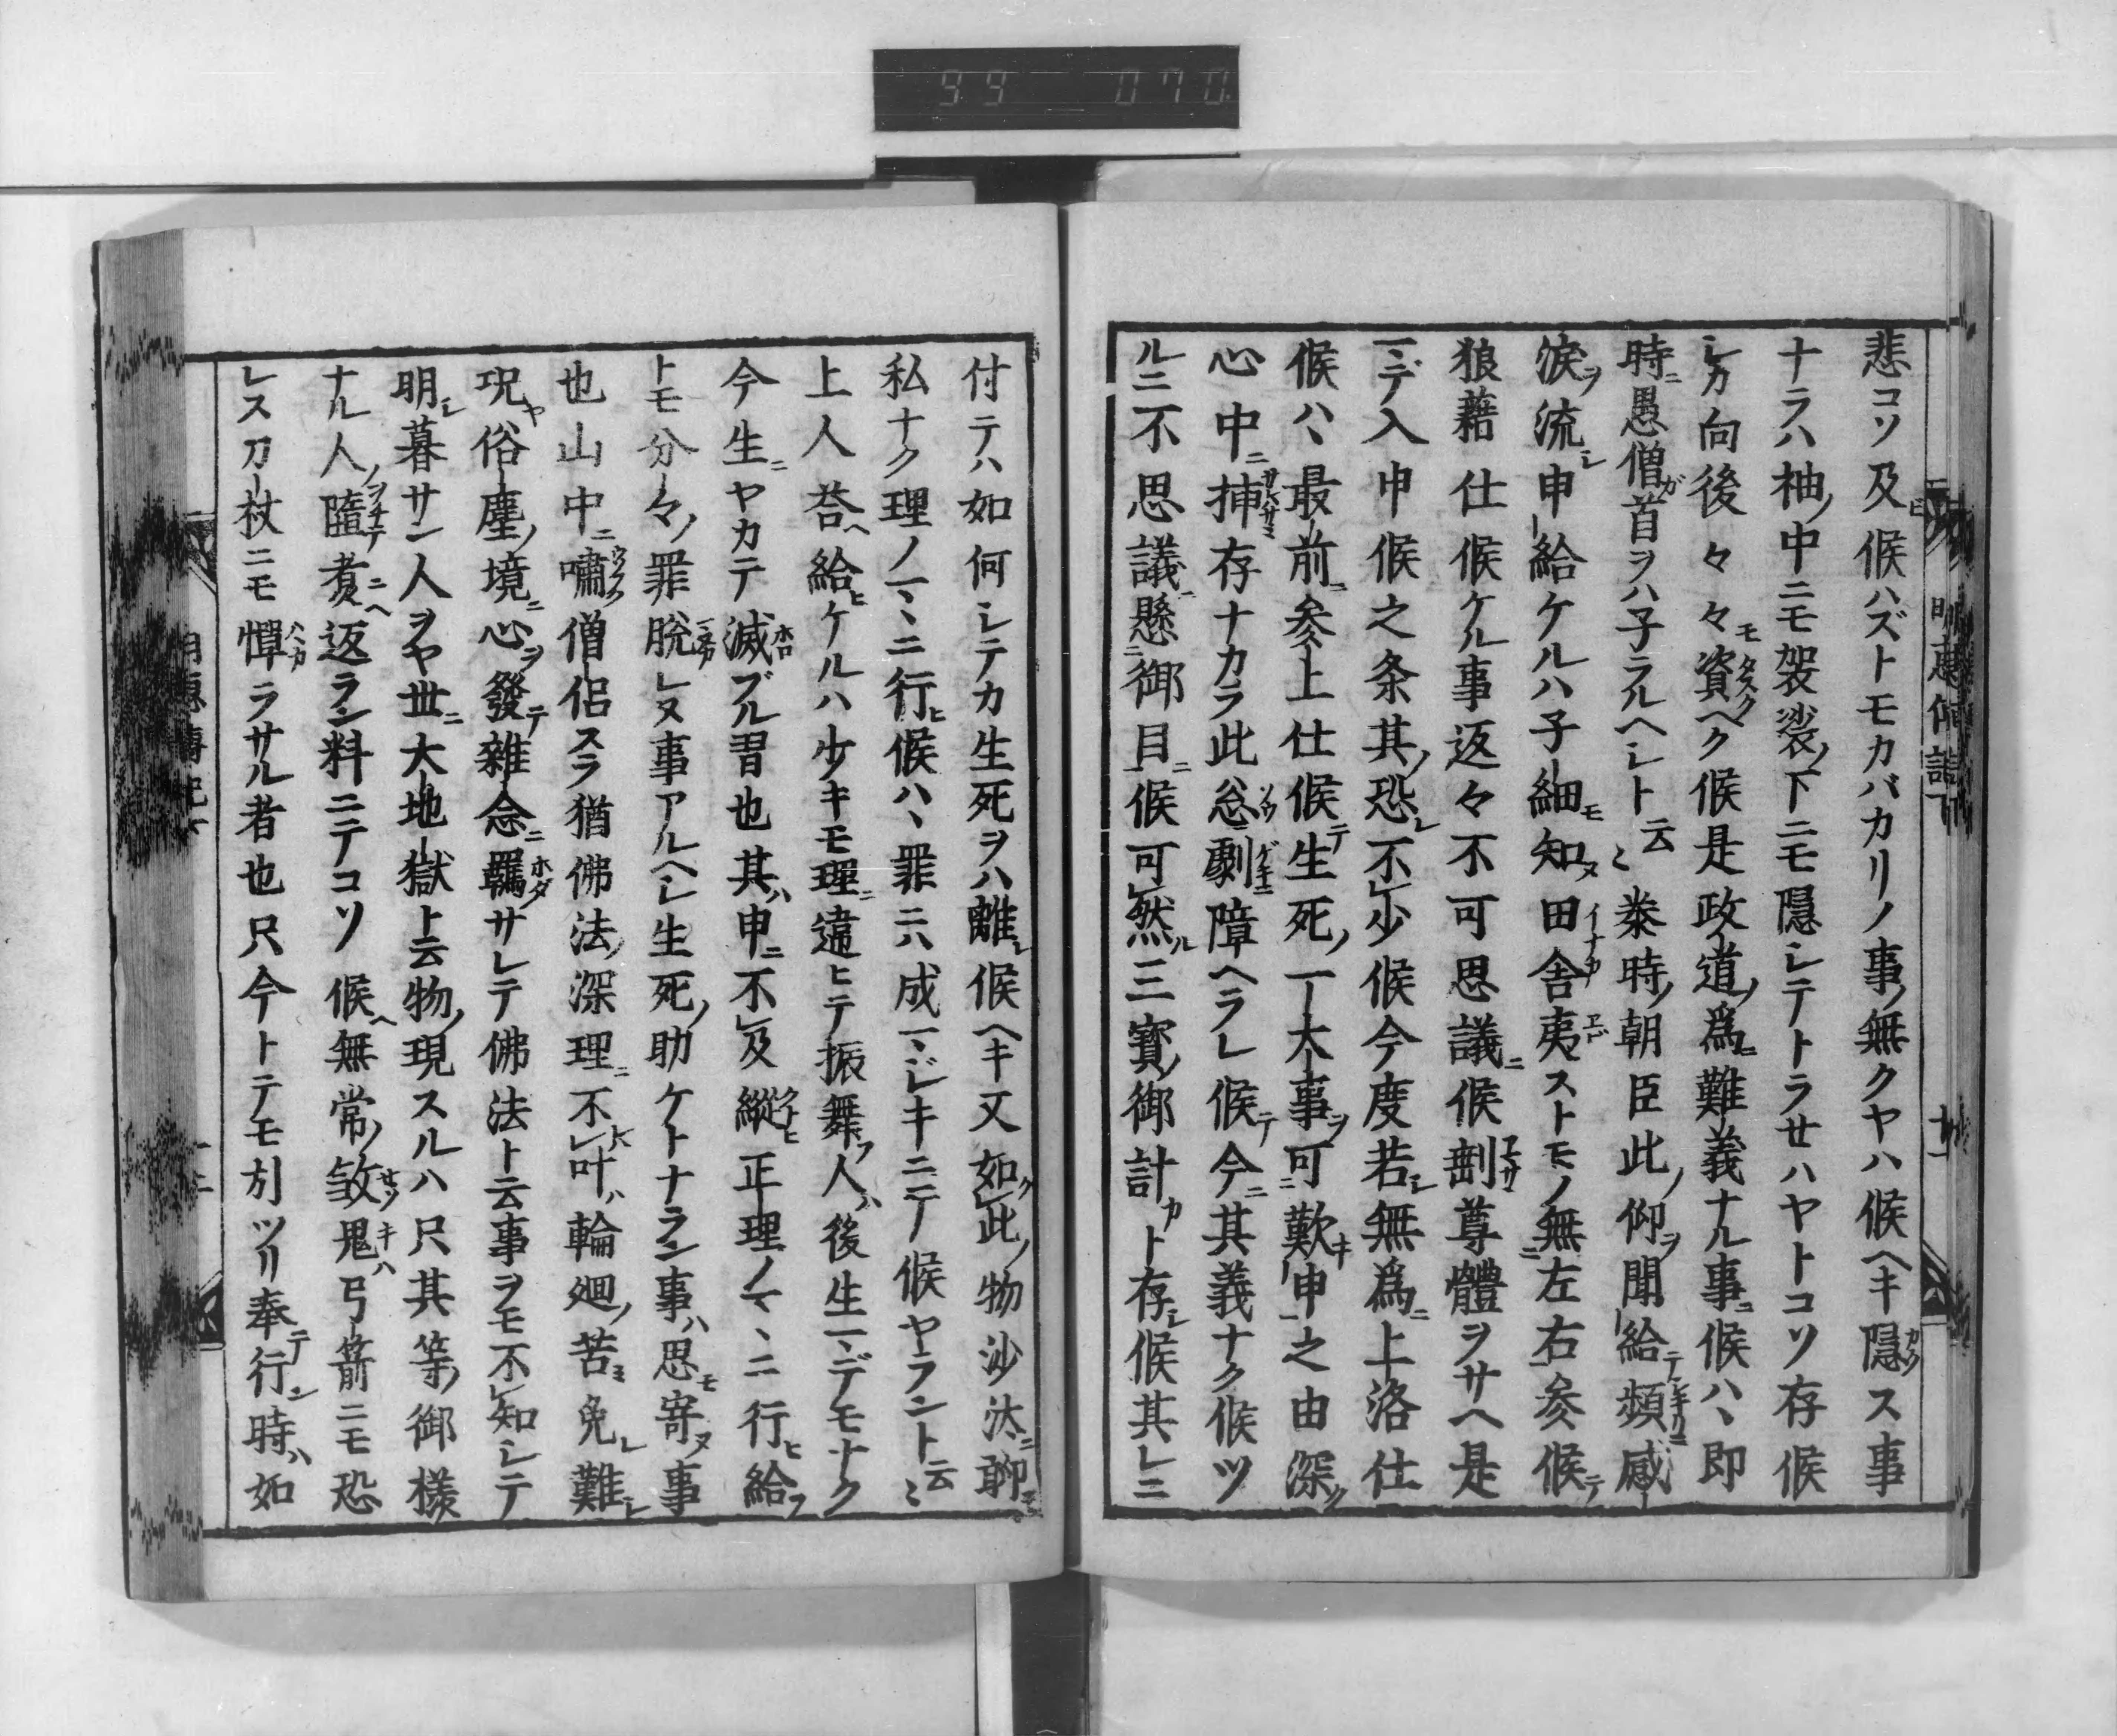 99 070
悲コソ及ヒ候ハズトモカバカリノ事ノ無クヤハ候ヘキ隠ス事
ナラハ袖ノ中ニモ袈裟ノ下ニモ隠シテトラセハヤトコソ存候
シカ向後々々モ資ヘク候是政道ノ爲ニ難義ナル事ニ候ハヽ即
時ニ愚僧ガ首ヲハ子ラルヘシト云〻泰時ノ朝臣此ノ仰ヲ聞給テ頻ニ感
涙ヲ流シ申給ケルハ子細モ知ヌ田舎夷ストモノ無ニ左右参候テ
狼藉仕候ケル事返々不可思議ニ候剰尊體ヲサヘ是
マデ入申候之条其ノ恐レ不少候今度若シ無爲ニ上洛仕
候ハヽ最前ニ参上仕候テ生死ノ一大事ヲ可歎キ申之由深ク
心中ニ挿存ナカラ此忩劇ニ障ヘラレ候テ今ニ其義ナク候ツ
ルニ不思議ニ懸御目ニ候可然ル三寳ノ御計カト存シ候其レニ
付テハ如何シテカ生死ヲハ離レ候ヘキ又如ク此ノ物沙汰ニ聊モ
私ナク理ノマヽニ行ヒ候ハヽ罪ニハ成マジキニテ候ヤラント云〻
上人荅ヘ給ヒケルハ少キモ理ニ違ヒテ振舞フ人ハ後生マデモナク
今生ニヤカテ滅ブル習也其ハ申ニ不及縦ヒ正理ノマヽニ行ヒ給フ
トモ分々ノ罪脱レヌ事アルヘシ生死ノ助ケトナラン事ハ思モ寄ヌ事
也山中ニ嘯ク僧侶スラ猶佛法ノ深理ニ不レ叶ハ輪廻ノ苦ミ免レ難シ
况ヤ俗塵ノ境ニ心ヲ發テ雜念ニ羈サレテ佛法ト云事ヲモ不知シテ
明シ暮サン人ヲヤ世ニ大地獄ト云物ノ現スルハ只其等ノ御樣
ナル人ノヲチテ煑返ラン料ニテコソ候ヘ無常ノ殺鬼ハ弓箭ニモ恐
レス刀杖ニモ憚ラサル者也只今トテモ引ツリ奉テ行ン時ハ如